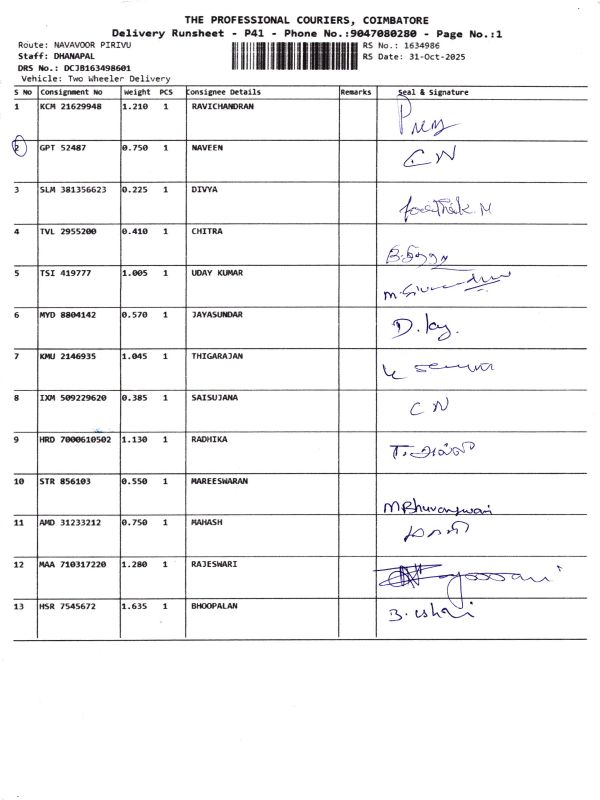 THE PROFESSIONAL COURIERS, COIMBATORE
Delivery Runsheet - P41 - Phone No.:9047080280 - Page No.:1
Route: NAVAVOOR PIRIVU RS No.: 1634986
Staff: DHANAPAL RS Date: 31-Oct-2025
DRS No.: DCJB163498601
Vehicle: Two Wheeler Delivery
S No Consignment No Weight PCS Consignee Details Remarks Seal & Signature
1 KCM 21629948 1.210 1 RAVICHANDRAN
2 GPT 52487 0.750 1 NAVEEN CN
3 SLM 381356623 0.225 1 DIVYA
4 TVL 2955200 0.410 1 CHITRA
5 TSI 419777 1.005 1 UDAY KUMAR
6 MYD 8804142 0.570 1 JAYASUNDAR
7 KMU 2146935 1.045 1 THIGARAJAN
8 IXM 509229620 0.385 1 SAISUJANA CN
9 HRD 7000610502 1.130 1 RADHIKA
10 STR 856103 0.550 1 MAREESWARAN
11 AMD 31233212 0.750 1 MAHASH
12 MAA 710317220 1.280 1 RAJESWARI
13 HSR 7545672 1.635 1 BHOOPALAN